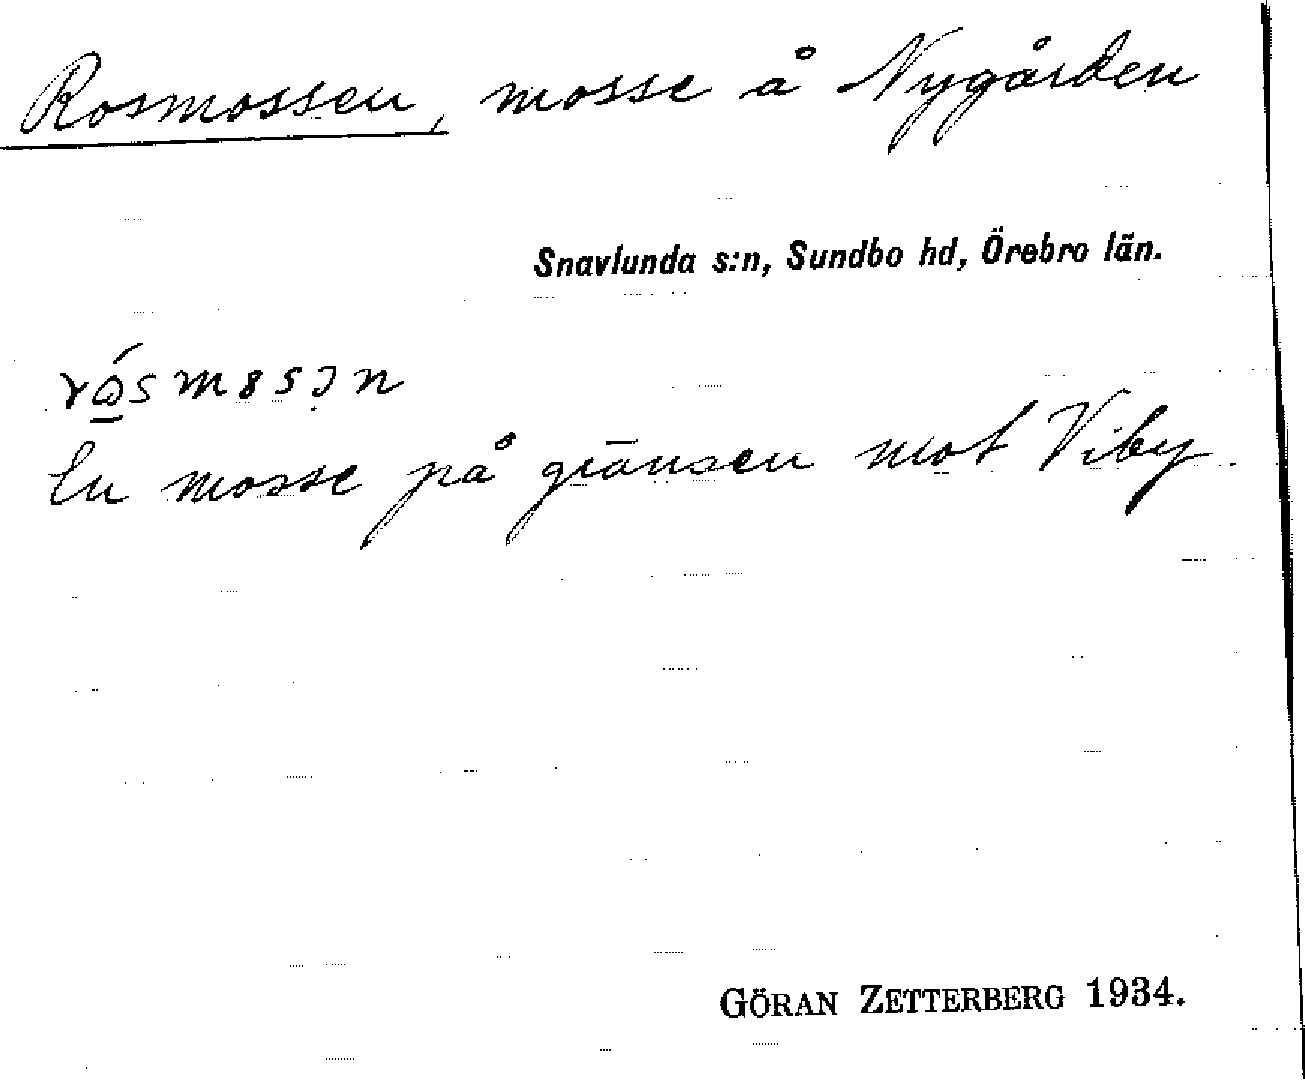 Rosmossen, mosse å Nygården
Snavlunda s:n, Sundbo hd, Örebro län.
En mosse på gränsen mot Viby.
GÖRAN ZETTERBERG 1934.